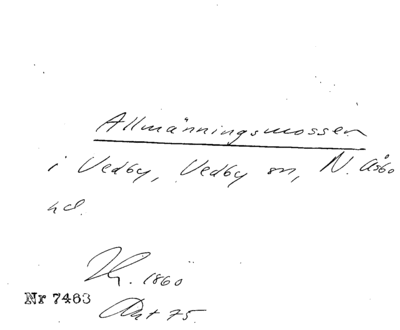 Allmänningsmossen
i Vedby, Vedby sn, N. Åsbo
hd.
1860
Nr 7463
Ant 75.